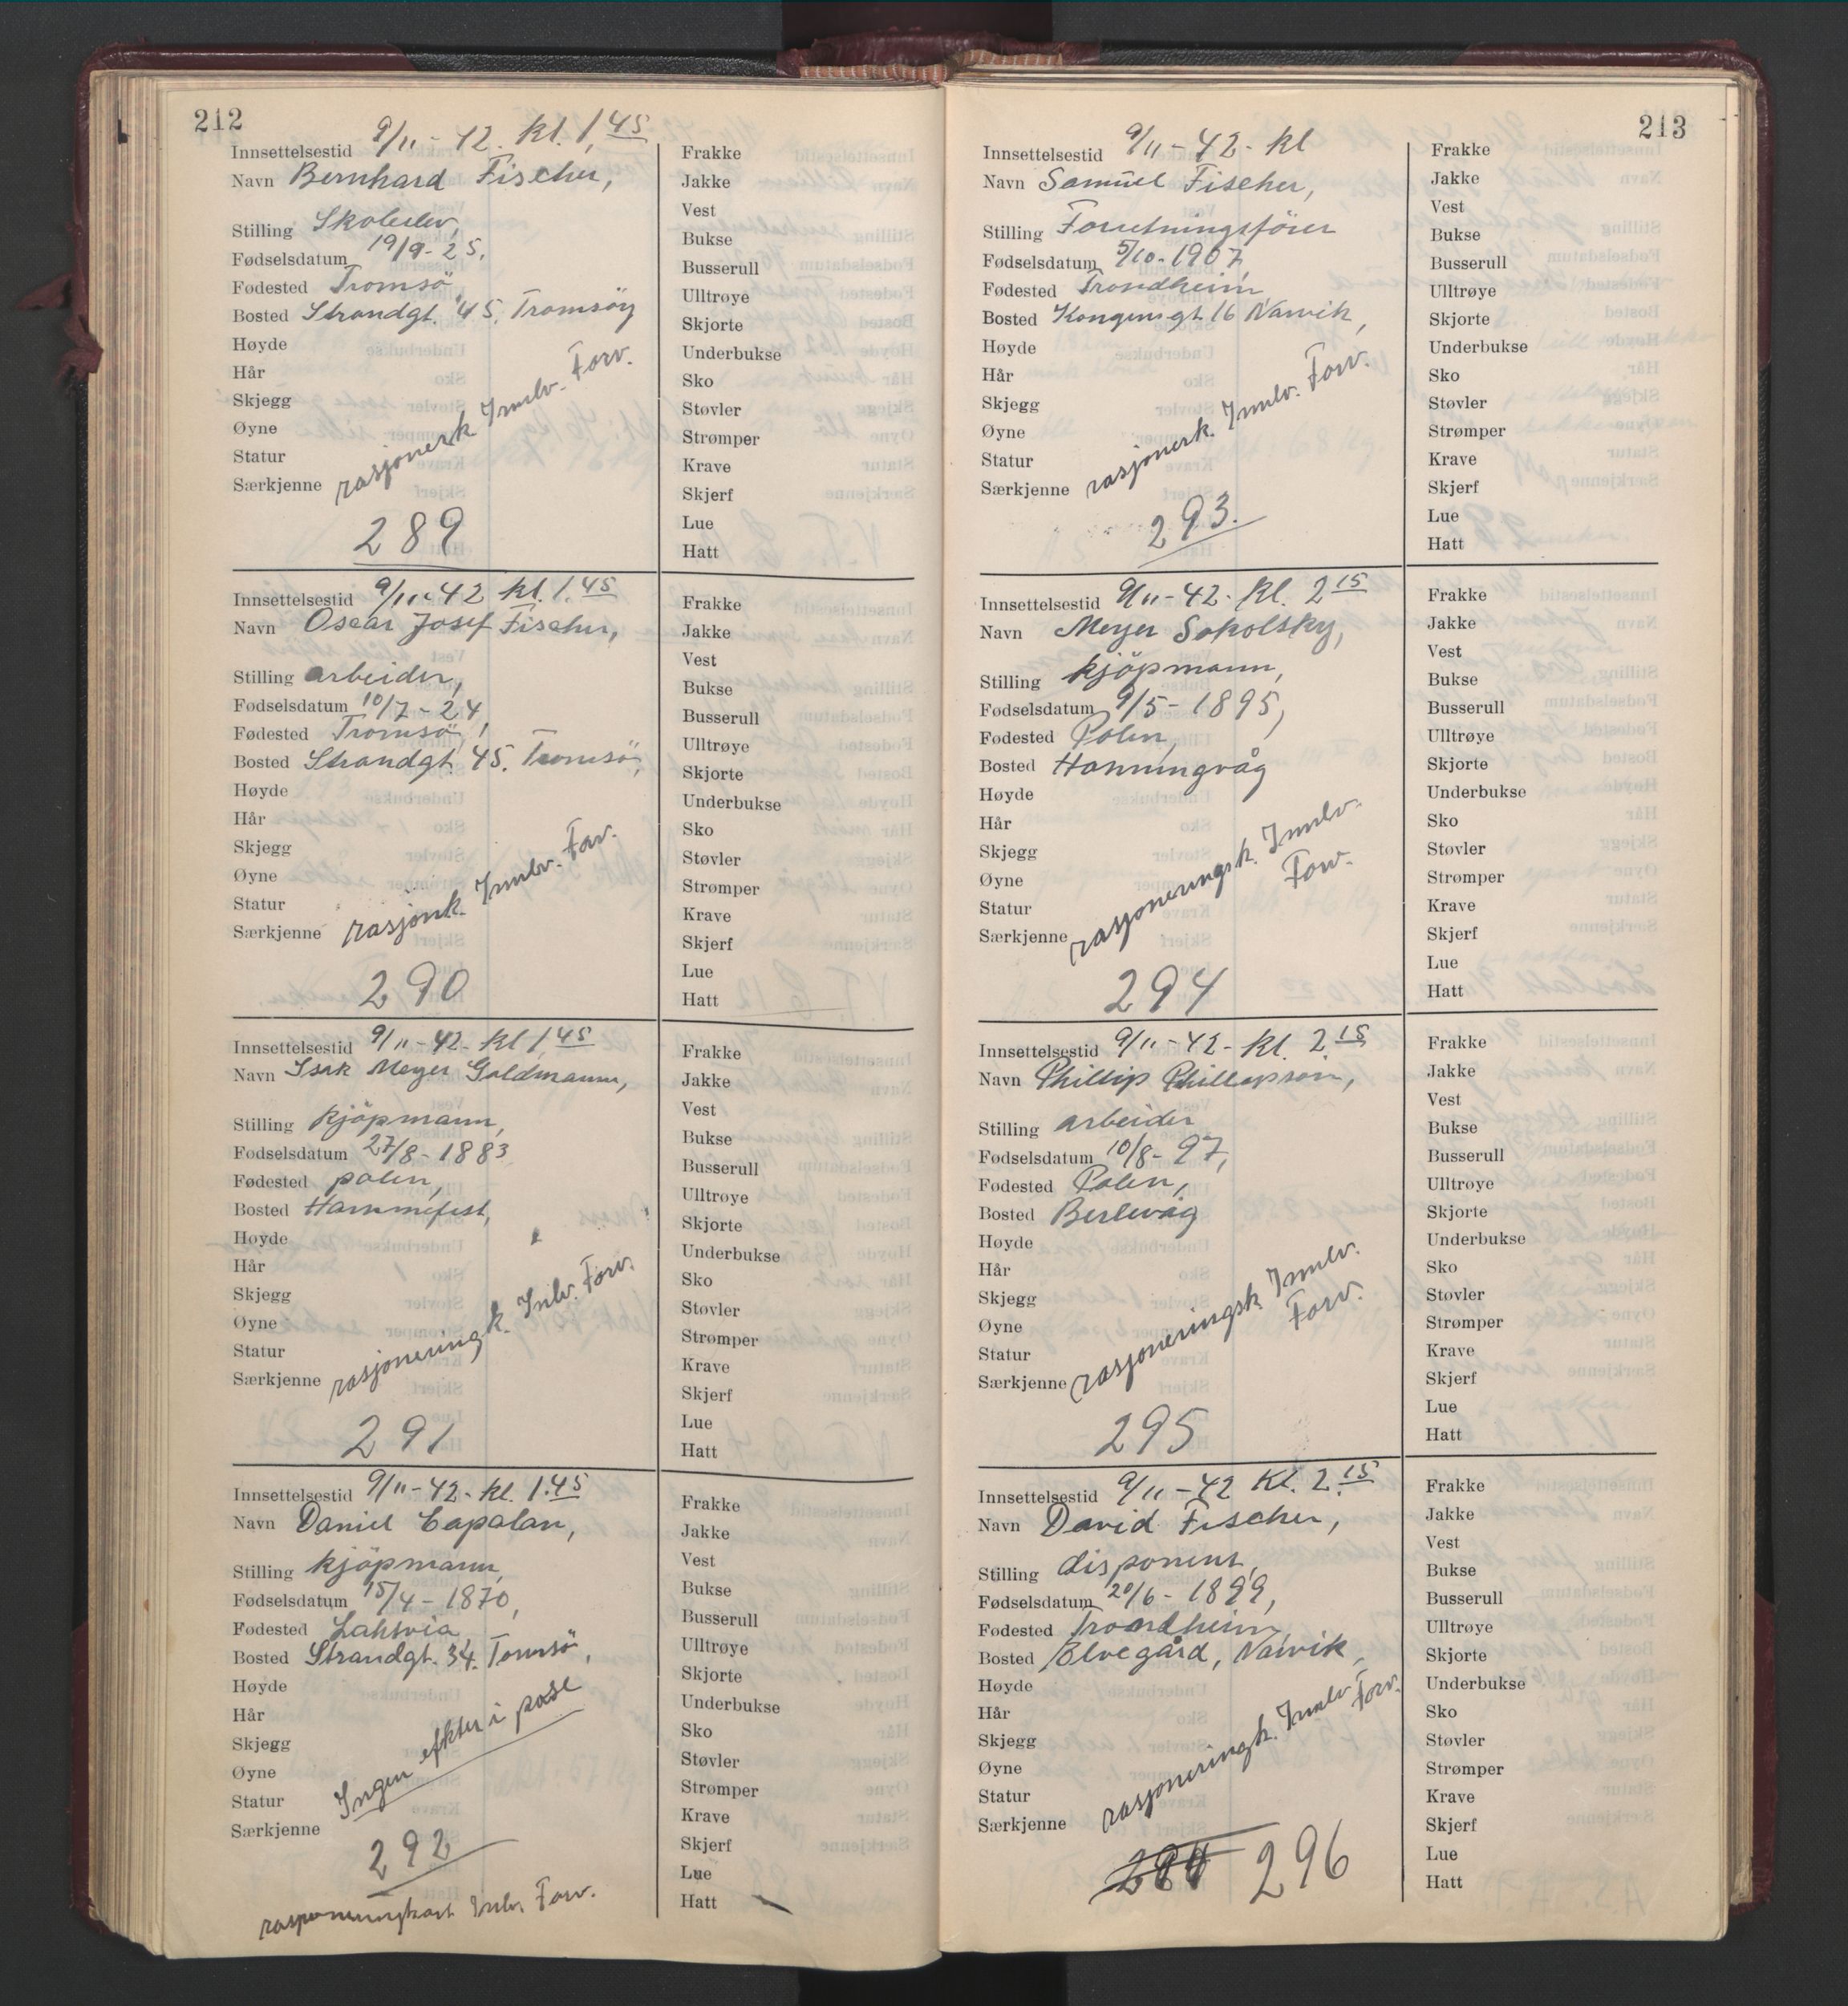 212
Innsettelsestid 9/11 - 42. kl. 1,45
Navn Bernhard Fischer,
Stilling Skoleelev,
Fødselsdatum 19/9 - 25,
Fødested Tromsö,
Bosted Strandgt. 45, Tromsöy
Høyde
Hår
Skjegg
Øyne
Statur
Særkjenne rasjonerk Innlv. Forv.
289
Frakke
Jakke
Vest
Bukse
Busserull
Ulltrøye
Skjorte
Underbukse
Sko
Støvler
Strømper
Krave
Skjerf
Lue
Hatt
Innsettelsestid 9/11 - 42 kl. 1.45
Navn Oscar Josef Fischer,
Stilling arbeider,
Fødselsdatum 10/7 - 24,
Fødested Tromsö,
Bosted Strandgt. 45. Tromsö,
Høyde
Hår
Skjegg
Øyne
Statur
Særkjenne rasjonk. Innlv. Forv.
290
Frakke
Jakke
Vest
Bukse
Busserull
Ulltrøye
Skjorte
Underbukse
Sko
Støvler
Strømper
Krave
Skjerf
Lue
Hatt
Innsettelsestid 9/11 - 42 - kl 1,45
Navn Isak Meyer Goldmann,
Stilling kjöpmann,
Fødselsdatum 27/8 - 1883
Fødested polen,
Bosted Hammefest,
Høyde
Hår
Skjegg
Øyne
Statur
Særkjenne rasjonering k. Inlv. Forv.
291
Frakke
Jakke
Vest
Bukse
Busserull
Ulltrøye
Skjorte
Underbukse
Sko
Støvler
Strømper
Krave
Skjerf
Lue
Hatt
Innsettelsestid 9/11 - 42 - kl. 1.45
Navn Daniel Capalan,
Stilling kjöpmann,
Fødselsdatum 15/4 - 1870,
Fødested Lahtvia
Bosted Strandgt. 34. Tomsö,
Høyde
Hår
Skjegg
Øyne
Statur
Særkjenne Ingen efkter i pose
292
rasjoneringkort Inlv. Forv.
Frakke
Jakke
Vest
Bukse
Busserull
Ulltrøye
Skjorte
Underbukse
Sko
Støvler
Strømper
Krave
Skjerf
Lue
Hatt
213
Innsettelsestid 9/11 - 42 - kl
Navn Samuel Fischer,
Stilling Forretningsförer
Fødselsdatum 5/10 - 1907,
Fødested Trondheim
Bosted Kongensgt. 16 Narvik,
Høyde
Hår
Skjegg
Øyne
Statur
Særkjenne rasjonerk. Innlv. Forv.
293.
Frakke
Jakke
Vest
Bukse
Busserull
Ulltrøye
Skjorte
Underbukse
Sko
Støvler
Strømper
Krave
Skjerf
Lue
Hatt
Innsettelsestid 9/11 - 42 - kl. 2 15
Navn Meyer Sokolsky,
Stilling kjöpmann,
Fødselsdatum 9/5 - 1895,
Fødested Polen,
Bosted Honningvåg
Høyde
Hår
Skjegg
Øyne
Statur
Særkjenne rasjoneringsk. Innlv.
Forv.
294
Frakke
Jakke
Vest
Bukse
Busserull
Ulltrøye
Skjorte
Underbukse
Sko
Støvler
Strømper
Krave
Skjerf
Lue
Hatt
Innsettelsestid 9/11 - 42 - kl. 2.15
Navn Phillip Phillipson,
Stilling arbeider
Fødselsdatum 10/8 - 97,
Fødested Polen,
Bosted Berlevåg
Høyde
Hår
Skjegg
Øyne
Statur
Særkjenne rasjoneringsk. Innlv.
Forv.
295
Frakke
Jakke
Vest
Bukse
Busserull
Ulltrøye
Skjorte
Underbukse
Sko
Støvler
Strømper
Krave
Skjerf
Lue
Hatt
Innsettelsestid 9/11 - 42 Kl. 2.15
Navn David Fischer,
Stilling disponent,
Fødselsdatum 20/6 - 1899,
Fødested Trondheim,
Bosted Elvegård, Narvik,
Høyde
Hår
Skjegg
Øyne
Statur
Særkjenne rasjoneringk. Innlv.
Forv.
296
Frakke
Jakke
Vest
Bukse
Busserull
Ulltrøye
Skjorte
Underbukse
Sko
Støvler
Strømper
Krave
Skjerf
Lue
Hatt